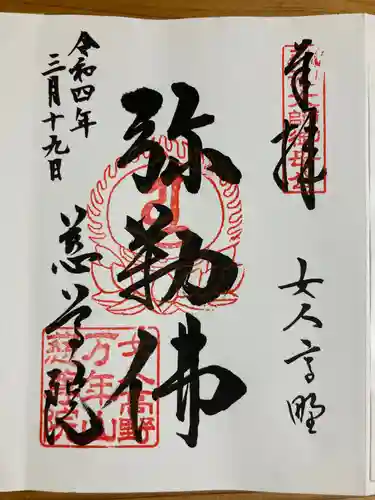 奉拝
女人高野
弥勒佛
令和四年
三月十九日
慈尊院
女人高野
万年山
慈尊院